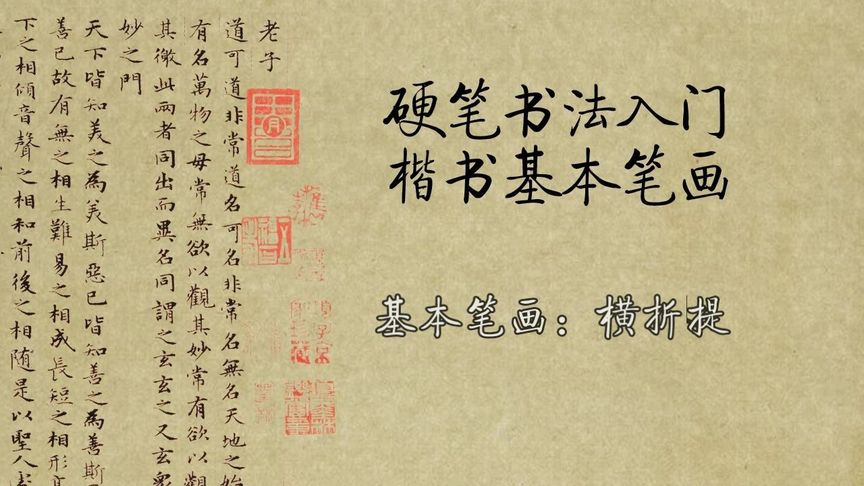 硬笔书法入门
楷书基本笔画
基本笔画：横折提
老子
道可道非常道名可名非常名無名天地之始
有名萬物之母常無欲以觀其妙常有欲以觀
其徼此兩者同出而異名同謂之玄玄之又玄衆
妙之門
天下皆知美之為美斯惡已皆知善之為善斯
善已故有無之相生難易之相成長短之相形
下之相傾音聲之相和前後之相随是以聖人